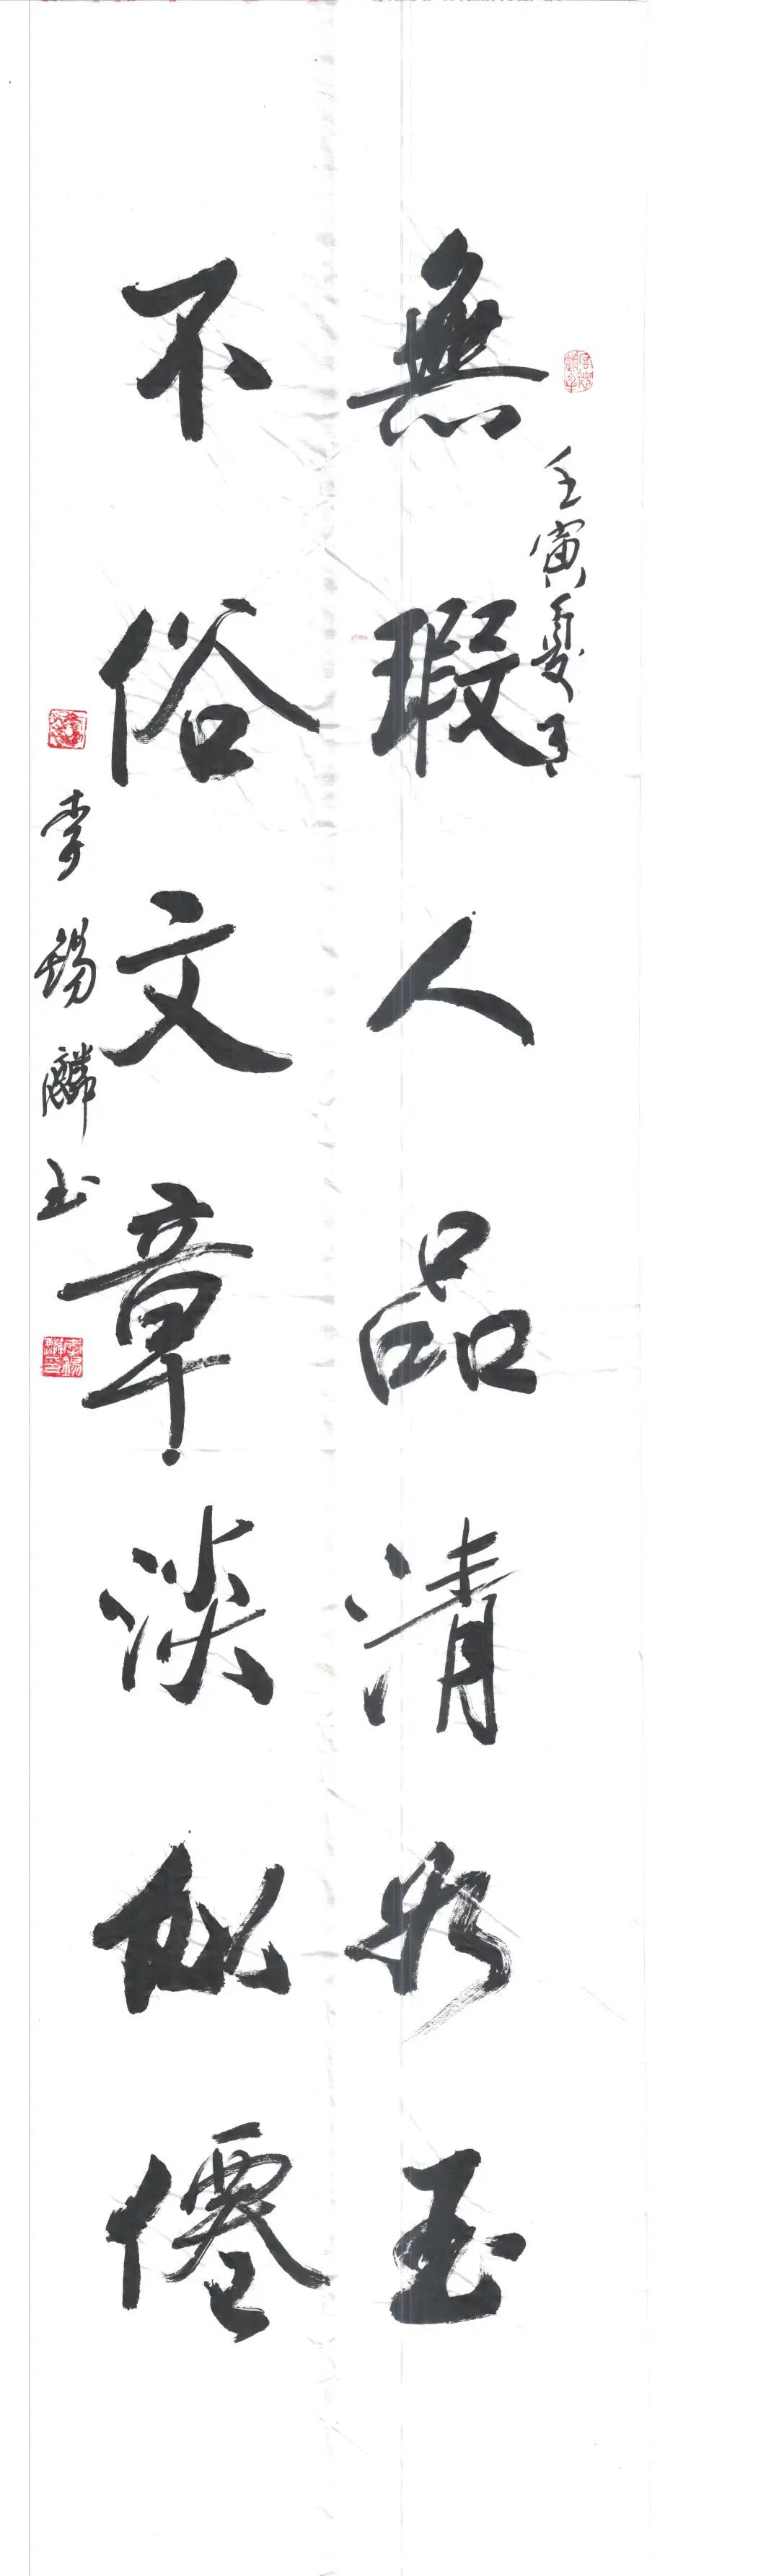 壬寅夏月
無瑕人品清如玉
不俗文章淡似僊
李錫麟书